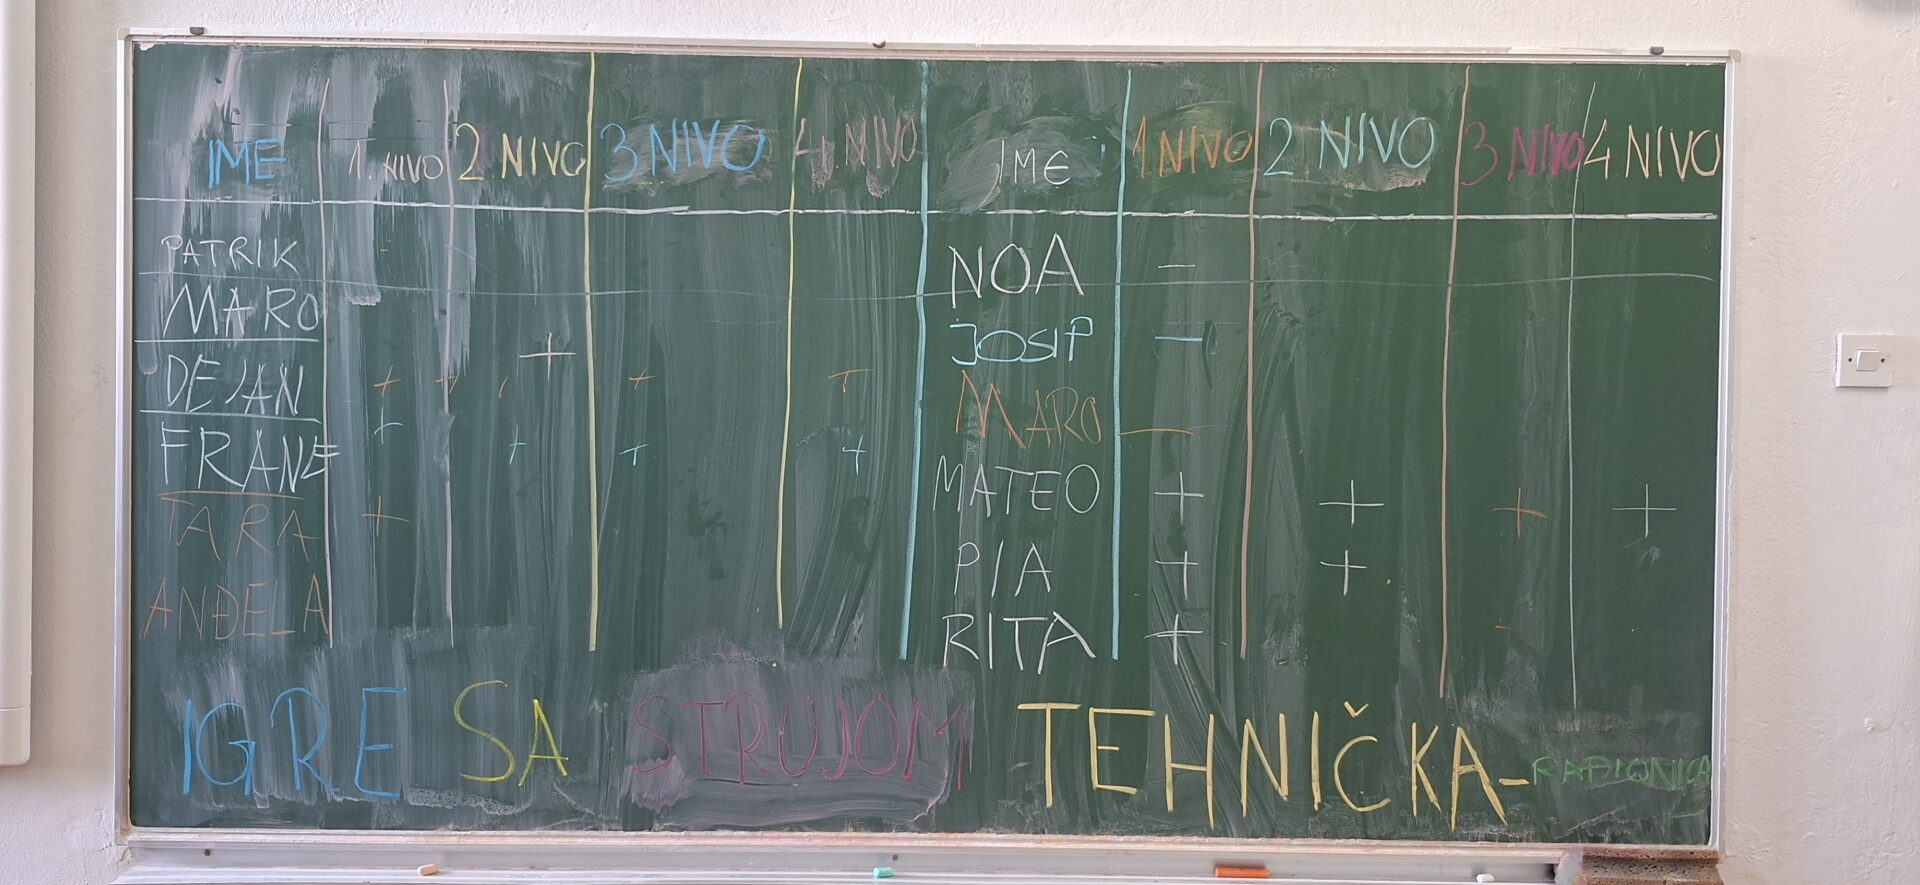 IME 1. NIVO 2 NIVO 3 NIVO 4 NIVO IME 1 NIVO 2 NIVO 3 NIVO 4 NIVO
PATRIK NOA -
MARO + JOSIP -
DEJAN + + + + MARO -
FRANE + + + + MATEO + + + +
TARA + PIA + +
ANĐELA RITA +
IGRE SA STRUJOM TEHNIČKA-RADIONICA